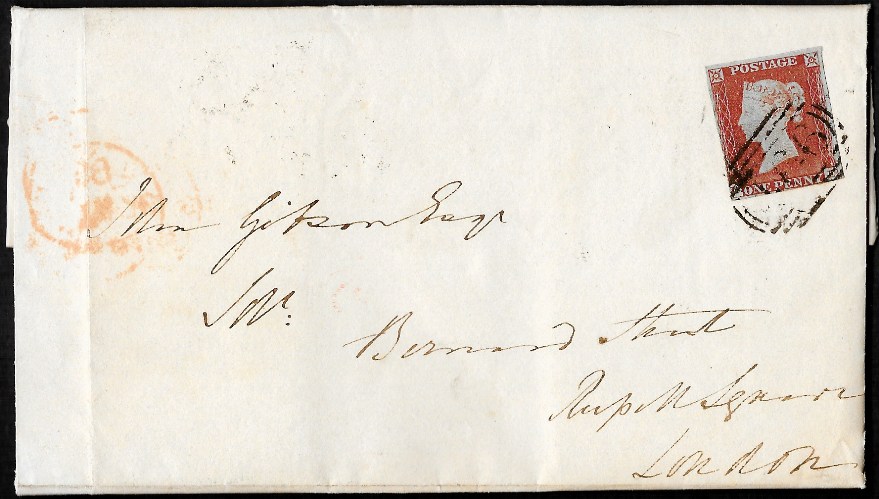 POSTAGE
ONE PENNY
John Gibson Esqr
Solr:
Bernard Street
Russell Square
London